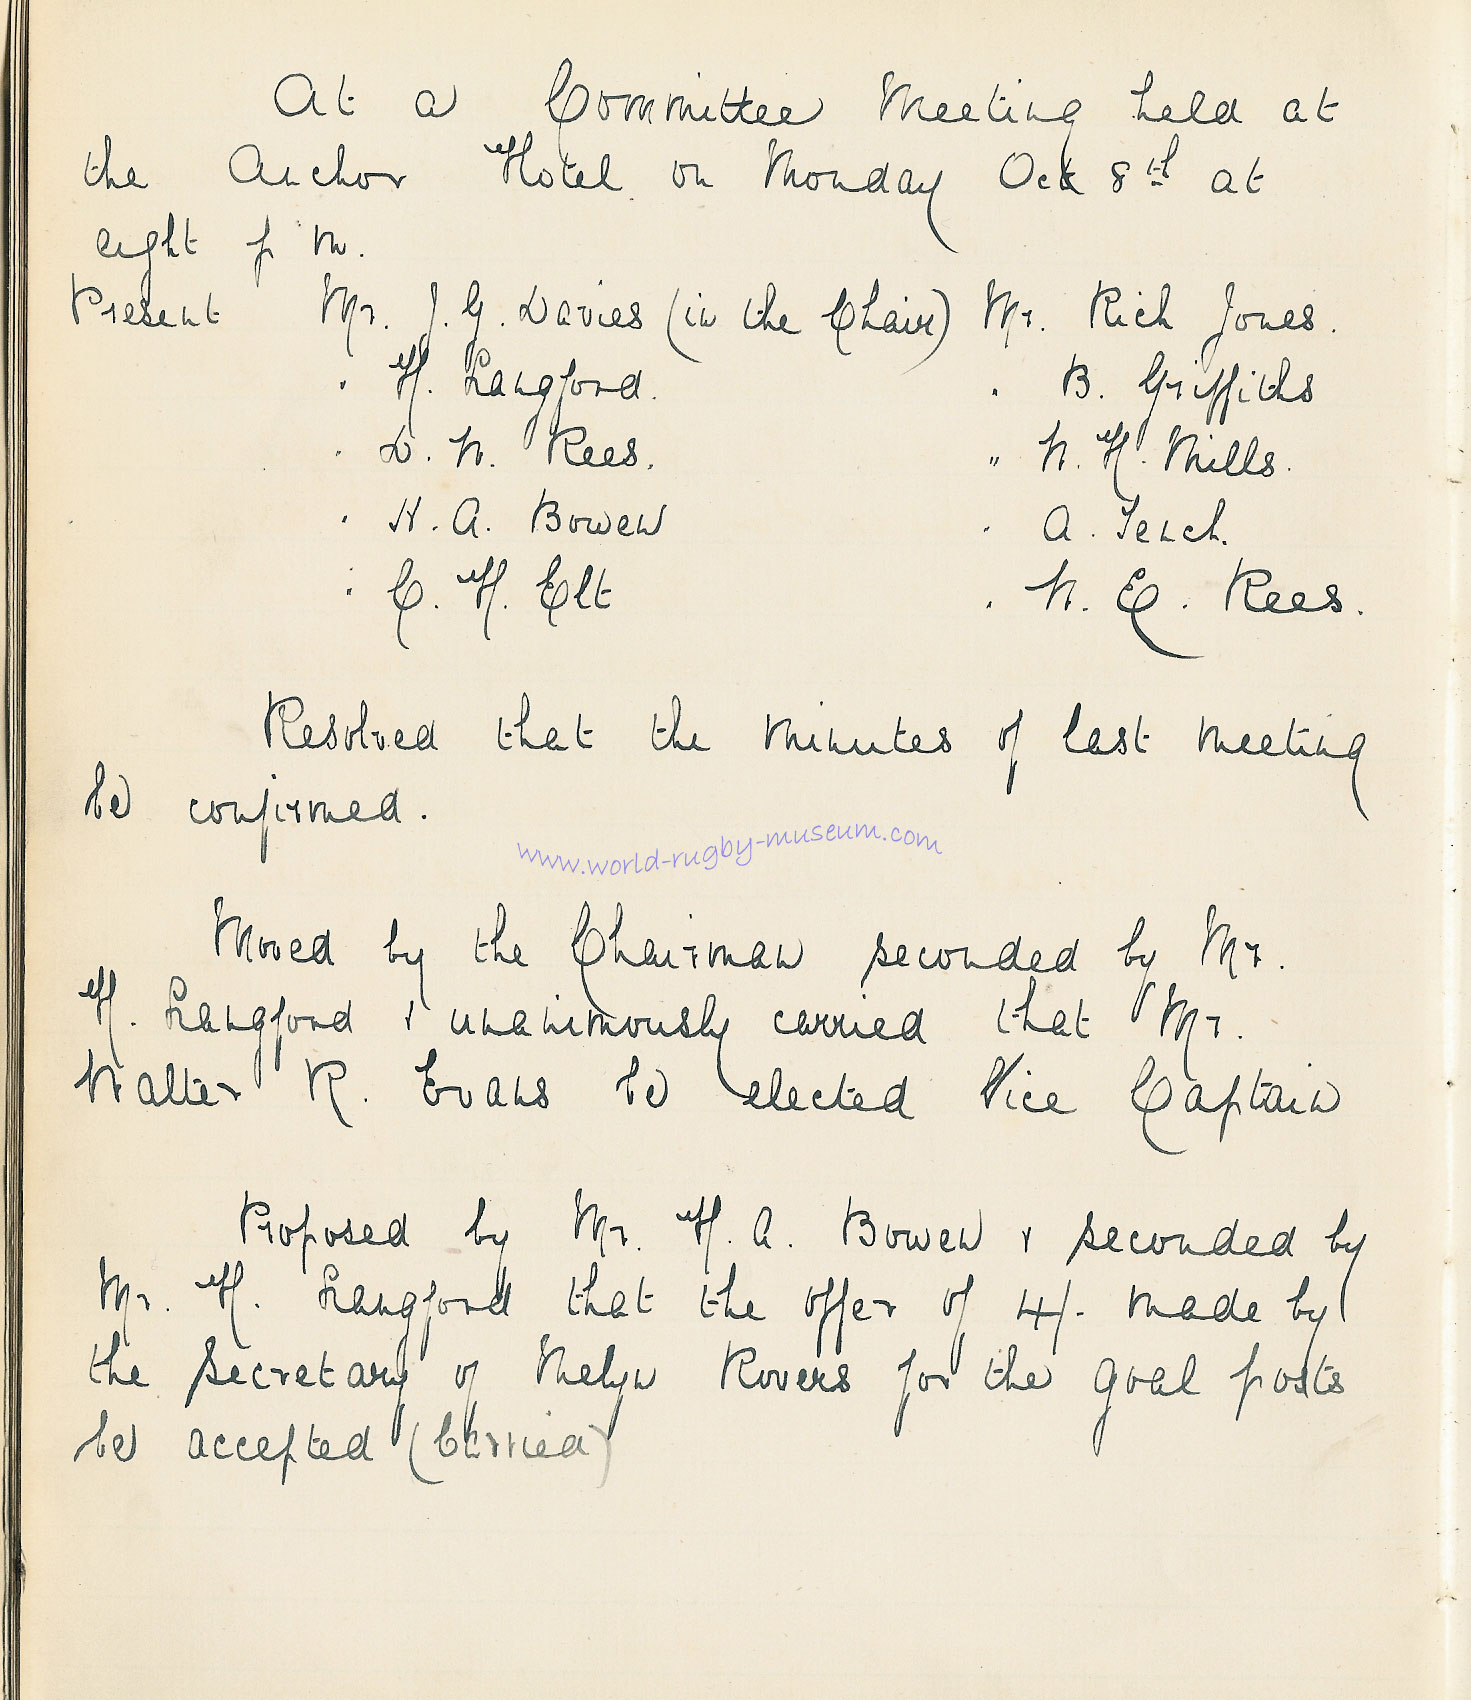 At a Committee Meeting held at
the Anchor Hotel on Monday Oct 8th at
eight p m.
Present Mr. J. G. Davies (in the Chair) Mr. Rich Jones.
" H. Langford. " B. Griffiths
" D. W. Rees. " W. H. Mills.
" H. A. Bowen " A. Tench.
" C. H. Elt " W. E. Rees.
Resolved that the minutes of last meeting
be confirmed.
www.world-rugby-museum.com
Moved by the Chairman seconded by Mr.
H. Langford & unanimously carried that Mr.
Walter R. Evans be elected Vice Captain
Proposed by Mr. H. A. Bowen & seconded by
Mr. H. Langford that the offer of 4/- made by
the Secretary of Melyn Rovers for the goal posts
be accepted (Carried)